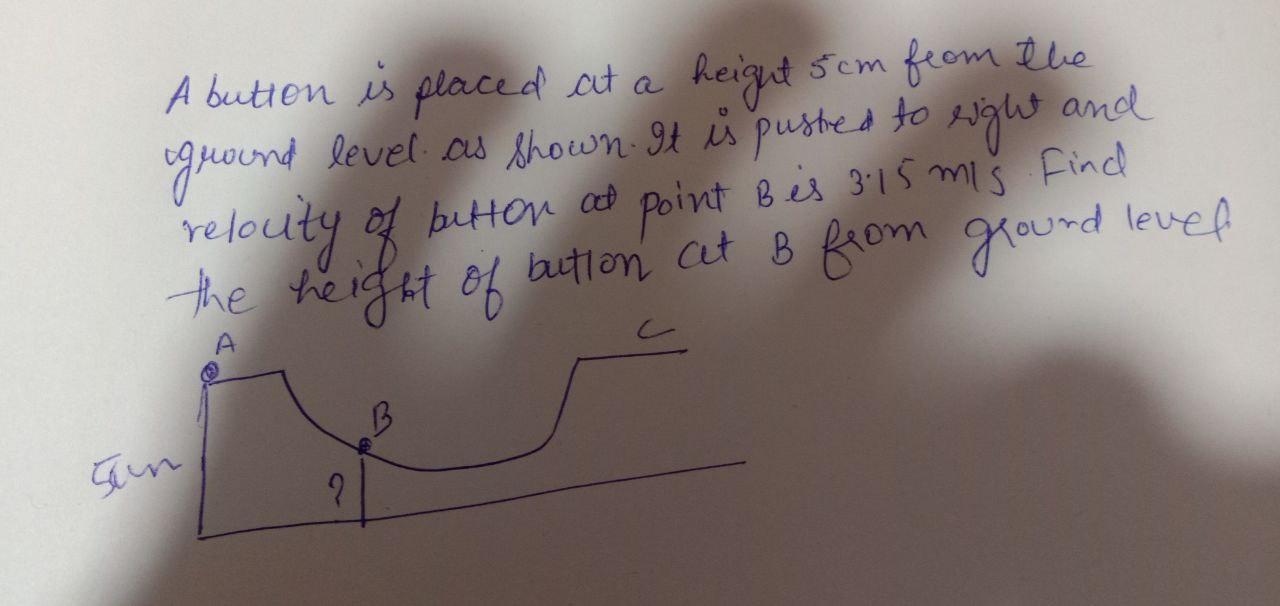 A button is placed at a height 5cm from the
ground level. as shown. It is pushed to right and
velocity of button at point B is 3.15 m/s. Find
the height of button at B from ground level
A
C
B
5cm
?